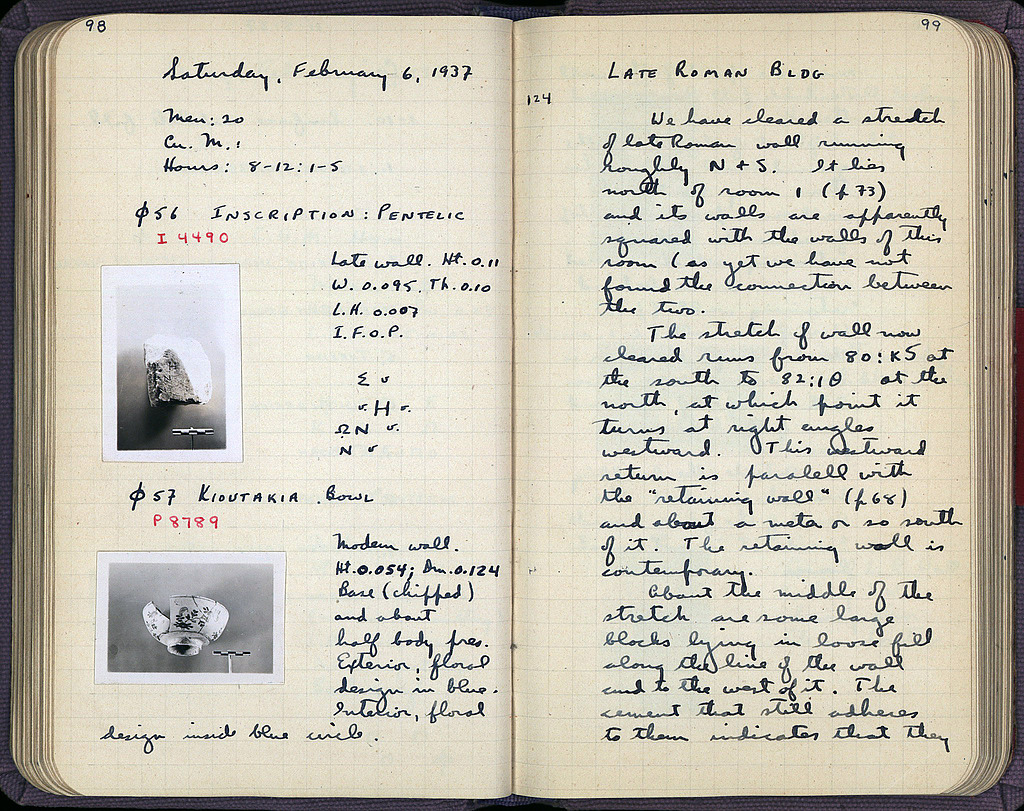 98
Saturday, February 6, 1937
Men: 20
Cu. M.:
Hours: 8-12: 1-5
ϕ56 INSCRIPTION: PENTELIC
I 4490
Late wall. Ht. 0.11
W. 0.095. Th. 0.10
L.H. 0.007
I.F.O.P.
Σ
H
ΩN
N
ϕ57 KIOUTAKIA BOWL
P 8789
Modern wall.
Ht. 0.054; Dm. 0.124
Base (chipped)
and about
half body pres.
Exterior, floral
design in blue.
Interior, floral
design inside blue circle.
99
LATE ROMAN BLDG
124
We have cleared a stretch
of late Roman wall running
roughly N + S. It lies
north of room 1 (p 73)
and its walls are apparently
squared with the walls of this
room (as yet we have not
found the connection between
the two.
The stretch of wall now
cleared runs from 80:ΚΣ at
the south to 82:ΙΘ at the
north, at which point it
turns at right angles
westward. This westward
return is paralell with
the "retaining wall" (p 68)
and about a meter or so south
of it. The retaining wall is
contemporary.
About the middle of the
stretch are some large
blocks lying in loose fill
along the line of the wall
and to the west of it. The
cement that still adheres
to them indicates that they